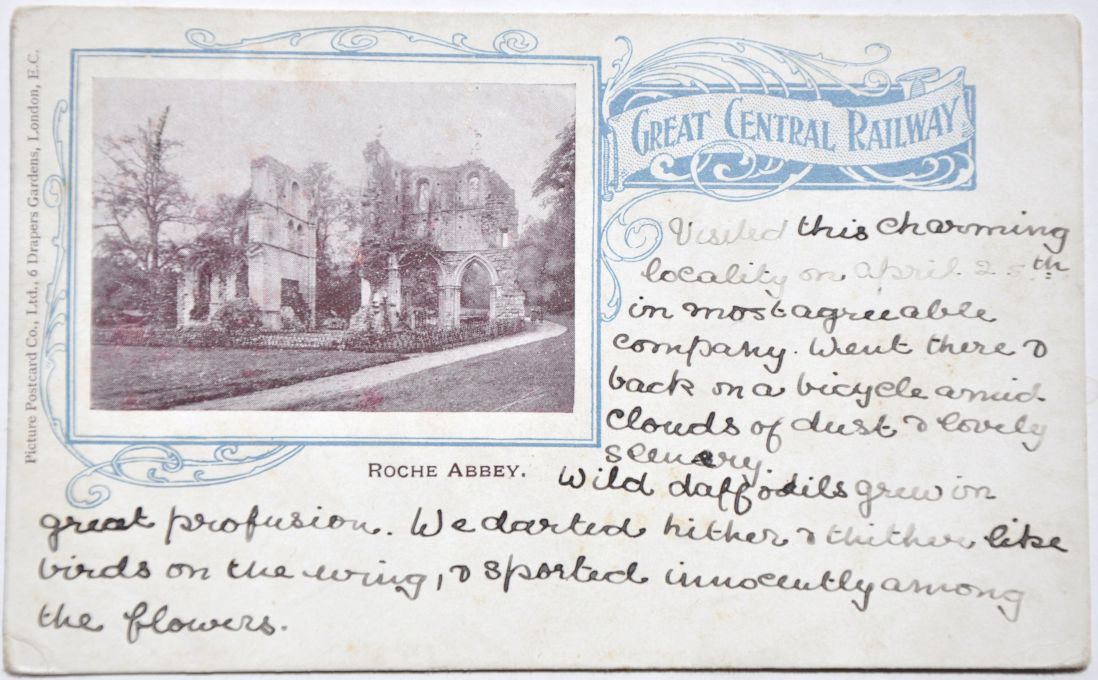 Picture Postcard Co., Ltd., 6 Drapers Gardens, London, E.C.
GREAT CENTRAL RAILWAY
ROCHE ABBEY.
Visited this charming
locality on April 25th
in most agreeable
company. Went there &
back on a bicycle amid
clouds of dust & lovely
scenery.
Wild daffodils grew in
great profusion. We darted hither & thither like
birds on the wing, & sported innocently among
the flowers.